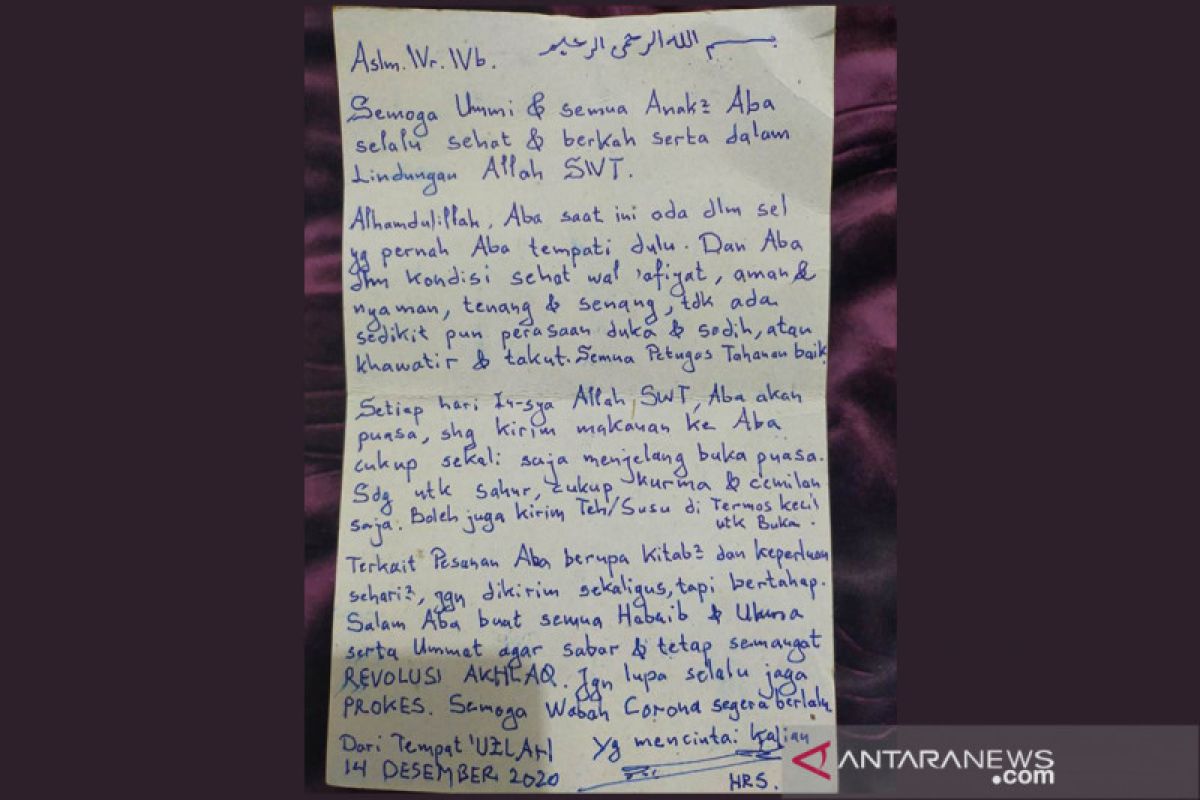 بسم الله الرحمن الرحيم
Aslm. Wr. Wb.
Semoga Ummi & semua Anak2 Aba
selalu sehat & berkah serta dalam
Lindungan Allah SWT.
Alhamdulillah, Aba saat ini ada dlm sel
yg pernah Aba tempati dulu. Dan Aba
dlm kondisi sehat wal 'afiyat, aman &
nyaman, tenang & senang, tdk ada
sedikit pun perasaan duka & sedih, atau
khawatir & takut. Semua Petugas Tahanan baik.
Setiap hari In-sya Allah SWT, Aba akan
puasa, shg kirim makanan ke Aba
cukup sekali saja menjelang buka puasa.
Sdg utk sahur, cukup kurma & cemilan
saja. Boleh juga kirim Teh/Susu di Termos kecil
utk Buka.
Terkait Pesanan Aba berupa Kitab2 dan keperluan
sehari2, jgn dikirim sekaligus, tapi bertahap.
Salam Aba buat semua Habaib & Ulama
serta Ummat agar sabar & tetap semangat
REVOLUSI AKHLAQ. Jgn lupa selalu jaga
PROKES. Semoga Wabah Corona segera berlalu
Dari Tempat 'UZLAH
14 DESEMBER 2020
Yg mencintai kalian
HRS.
ANTARANEWS
.com